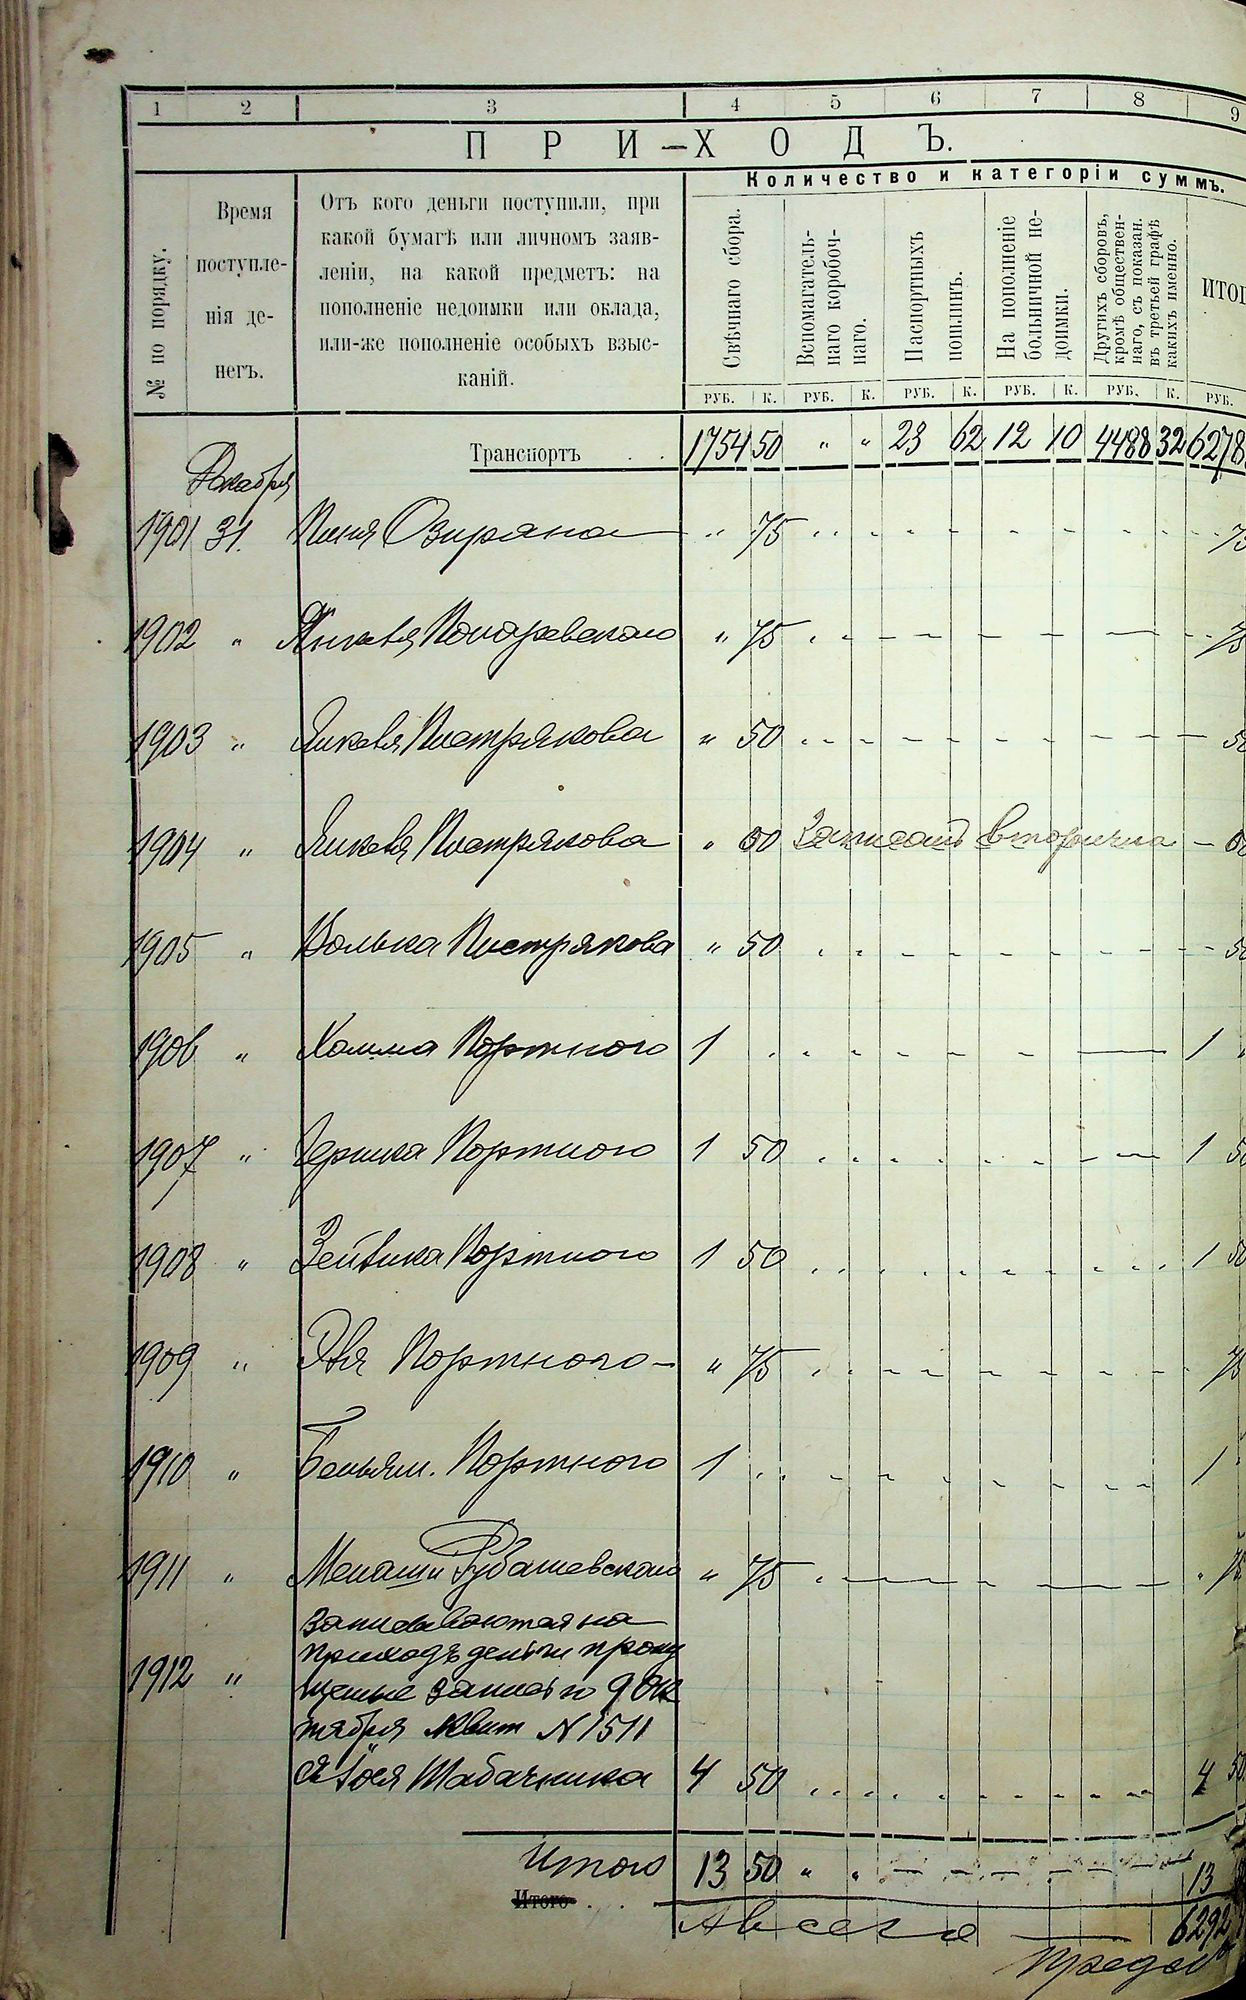 1 2 3 4 5 6 7 8 9
ПРИ-ХОДЪ.
Количество и категоріи суммъ.
№ по порядку.
Время
поступле-
нія де-
негъ.
Отъ кого деньги поступили, при
какой бумагѣ или личномъ заяв-
леніи, на какой предметъ: на
пополненіе недоимки или оклада,
или-же пополненіе особыхъ взыс-
каній.
Свѣчнаго сбора.
Вспомагатель-
наго коробоч-
наго.
Паспортныхъ
пошлинъ.
На пополненіе
больничной не-
доимки.
Другихъ сборовъ,
кромѣ обществен-
наго, съ показан.
въ третьей графѣ
какихъ именно.
ИТОГ
РУБ. К. РУБ. К. РУБ. К. РУБ. К. РУБ. К. РУБ.
Транспортъ . . 1754 50 " " 23 62 12 10 4488 32 6278
Декабря
1901 31. Пиня Озирана " 75 75
1902 " " 75 75
1903 " Янкеля Пистрякова " 50 50
1904 " Янкеля Пистрякова " 50 Записанъ вторична 50
1905 " Волька Пистрякова " 50 50
1906 " Портного 1 1
1907 " Гершка Портного 1 50 1 50
1908 " Зейвика Портного 1 50 1 50
1909 " Портного " 75 75
1910 " Беньям. Портного 1 1
1911 " Менаши Рубашевскаго " 75 " 75
Записываются на
приходъ деньги пропу
1912 " щенные записью 9 Ок
тября Квит N 1511
Табачника 4 50 4 50
Итого 13 50 " " 13
Итого . .
Авсего 6292